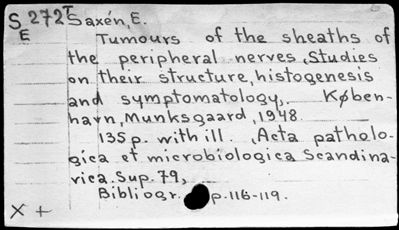 S 272T Saxén, E.
E
Tumours of the sheaths of
the peripheral nerves, Studies
on their structure, histogenesis
and symptomatology,. Køben-
havn, Munksgaard, 1948.
135 p. with ill. , Acta patholo-
gica et microbiologica Scandina-
vica. Sup. 79,
Bibliogr. p. 116-119.
X +